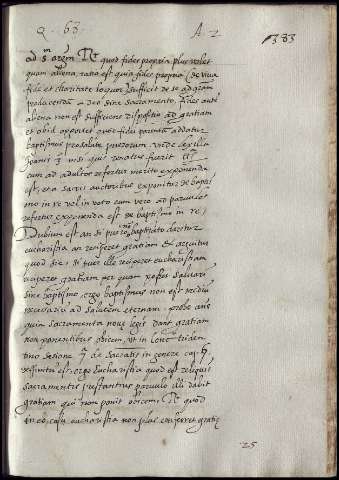 Q. 63. A 2 383
ad 3m argm. Rr quod fides propria plus valet
quam aliena, ratio est quia fides propria (de viva
fide et charitate loquor) sufficit de se ad gratiam
producendam a deo sine sacramento. fides autem
aliena non est sufficiens dispositio ad gratiam
et ob id oportet quod fidei parentum addatur
baptismus pro salute puerorum unde et illa
Joanis 3. nisi quis renatus fuerit etc
cum ad adultos refertur merito exponenda
est, et a sacris auctoribus exponitur de baptis
mo in re vel in voto cum vero ad parvulos
refertur exponenda est de baptismo in re
Dubium est an si puero non baptizato daretur
eucharistia an reciperet gratiam et arguitur
quod sic. si puer ille reciperet eucharistiam
reciperet gratiam per quam posset salvari
sine baptismo, ergo baptismus non est medium
necessarium ad salutem eternam. probo ans
quia sacramenta nove legis dant gratiam
non ponentibus obicem, ut in concilio triden
tino sesione 7 de sacramentis in genere
definitum est. ergo Eucharistia quod est
sacramentis prestantius parvulo illi dabit
gratiam qui non ponit obicem. Rr quod
in eo casu eucharistia non plus conferret gratiam
25